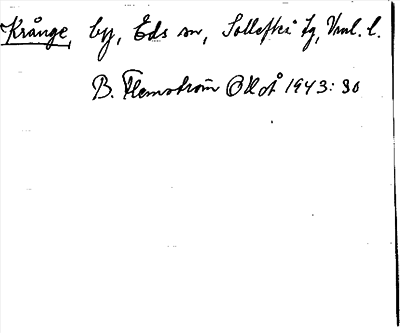 Krånge, by, Eds sn, Sollefteå tg, Vnl. l.
B. Flemström OUÅ 1943: 30